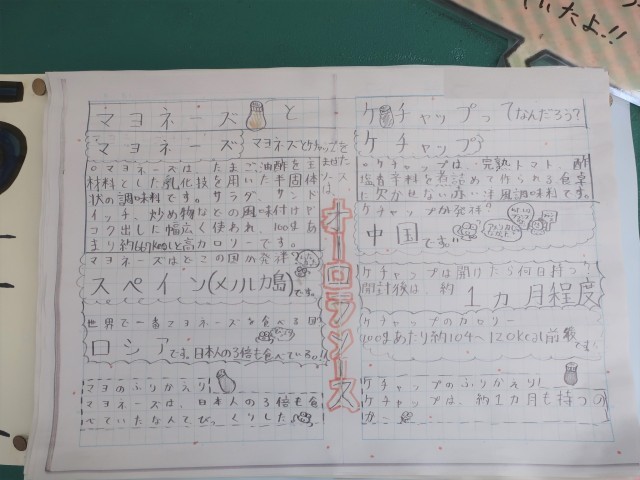 いたよ!!
マヨネーズと
ケチャップってなんだろう?
マヨネーズ
マヨネーズとケチャップを
まぜたソースは
オーロラソース
。マヨネーズは、たまご油酢を主
材料とした乳化技を用いた半固体
状の調味料です。サラダ、サンド
イッチ、炒め物などの風味付けや
コク出しと幅広く使われ、100gあ
まり約667kcalと高カロリーです。
マヨネーズはどこの国が発祥?
スペイン(メノルカ島)です
世界で一番マヨネーズを食べる国
ロシアです。日本人の3倍も食べている。
マヨのふりかえり!
マヨネーズは、日本人の3倍も食
べていたなんてびっくりした
ケチャップ
。ケチャップは、完熟トマト、酢
塩香辛料を煮詰めて作られる食卓
に欠かせない赤い洋風調味料です。
ケチャップが発祥?
中国です
ケチャップは開けたら何日持つ?
開封後は、約1ヵ月程度
ケチャップのカロリー
100gあたり約104~120kcal前後です
ケチャップのふりかえり!
ケチャップは、約1カ月も持つの
か